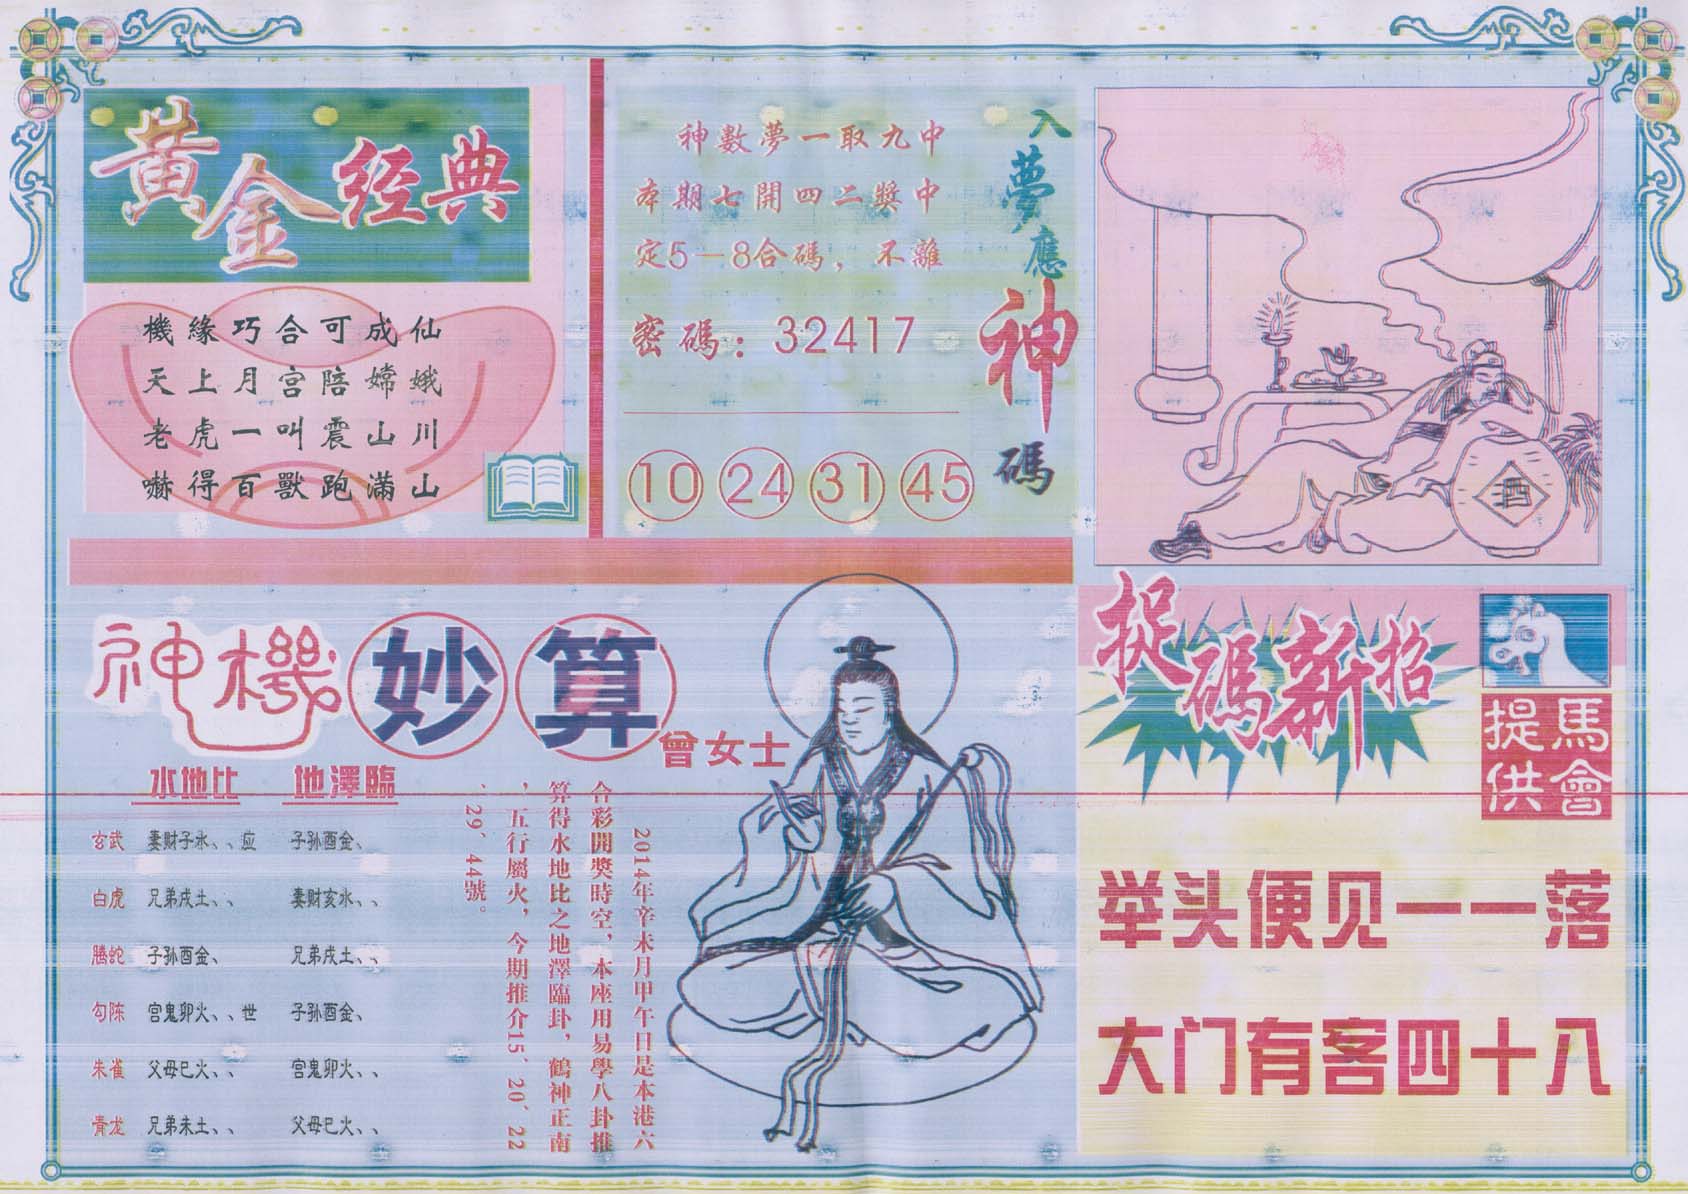 黄金经典
機緣巧合可成仙
天上月宫陪嫦娥
老虎一叫震山川
嚇得百獸跑滿山
神數夢一取九中
本期七開四二獎中
定5一8合碼，不離
密碼：32417
10 24 31 45
入夢應神碼
酒
神機妙算
曾女士
水地比 地澤臨
玄武 妻财子水、、应 子孙酉金、
白虎 兄弟戌土、、 妻财亥水、、
腾蛇 子孙酉金、 兄弟戌土、、
勾陈 官鬼卯火、、世 子孙酉金、
朱雀 父母巳火、、 官鬼卯火、、
青龙 兄弟未土、、 父母巳火、、
2014年辛未月甲午日是本港六
合彩開獎時空，本座用易學八卦推
算得水地比之地澤臨卦，鶴神正南
，五行屬火，今期推介15、20、22
、29、44號。
捉碼新招
馬會提供
举头便见一一落
大门有客四十八